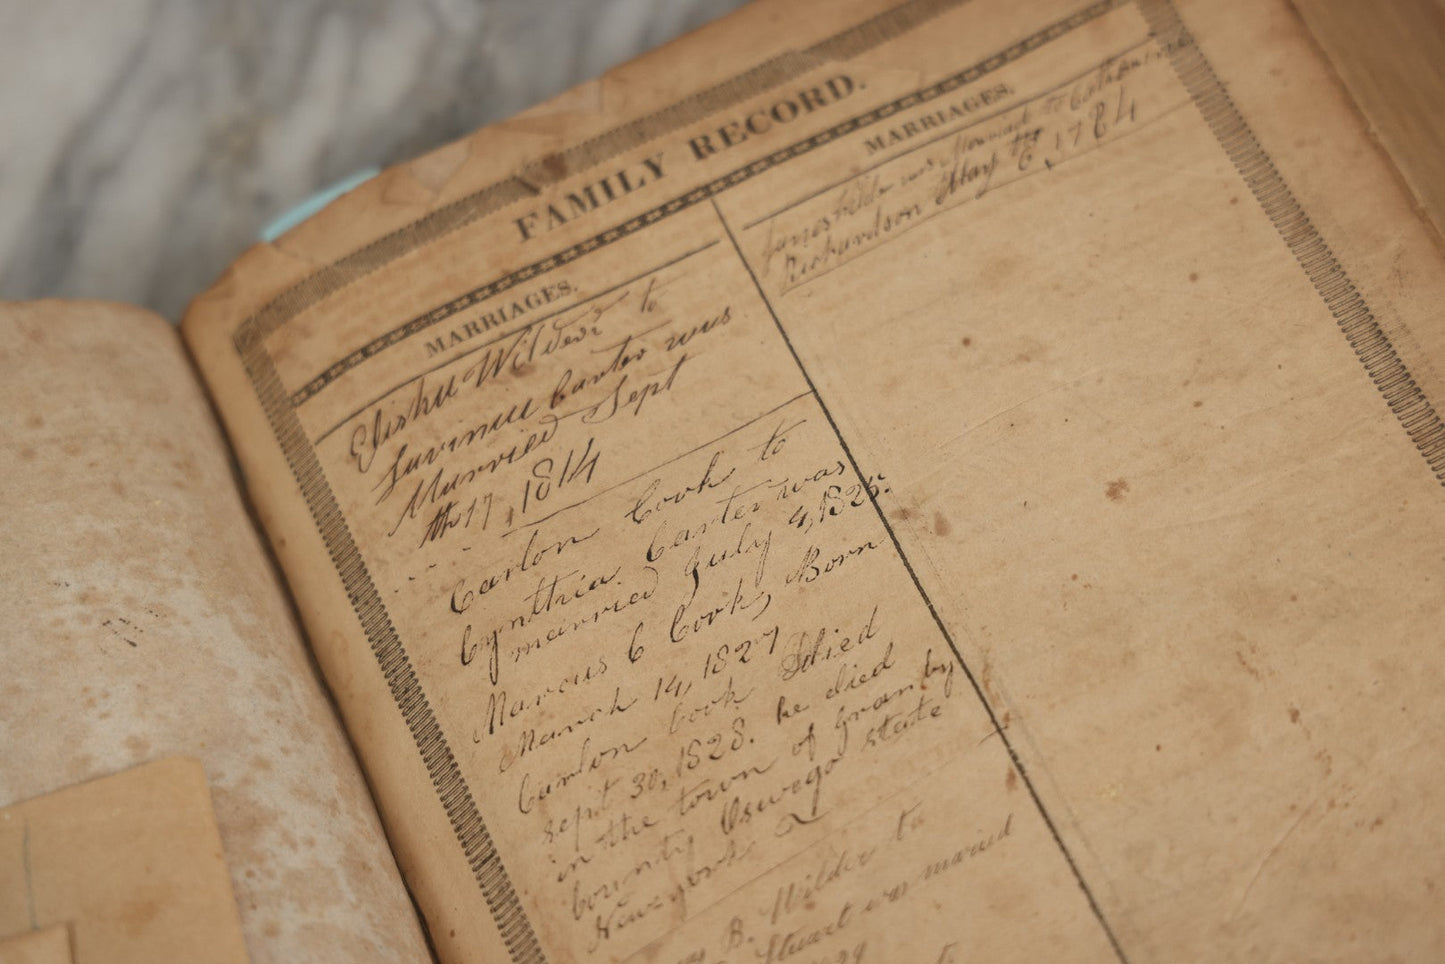 FAMILY RECORD.
MARRIAGES.
Elishu Wilder to
Lavinia Carter was
Married Sept
th 17, 1814
Carlon Cook to
Cynthia Carter was
married July 4, 1825.
Marcus C Cook, Born
March 14, 1827
Carlon Cook Died
sept 30, 1828. he died
in the town of granby
County Oswego state
New-york
B. Wilder to
Stuart was married
MARRIAGES.
James Wilder was Married to
Richardson May th 6, 1784